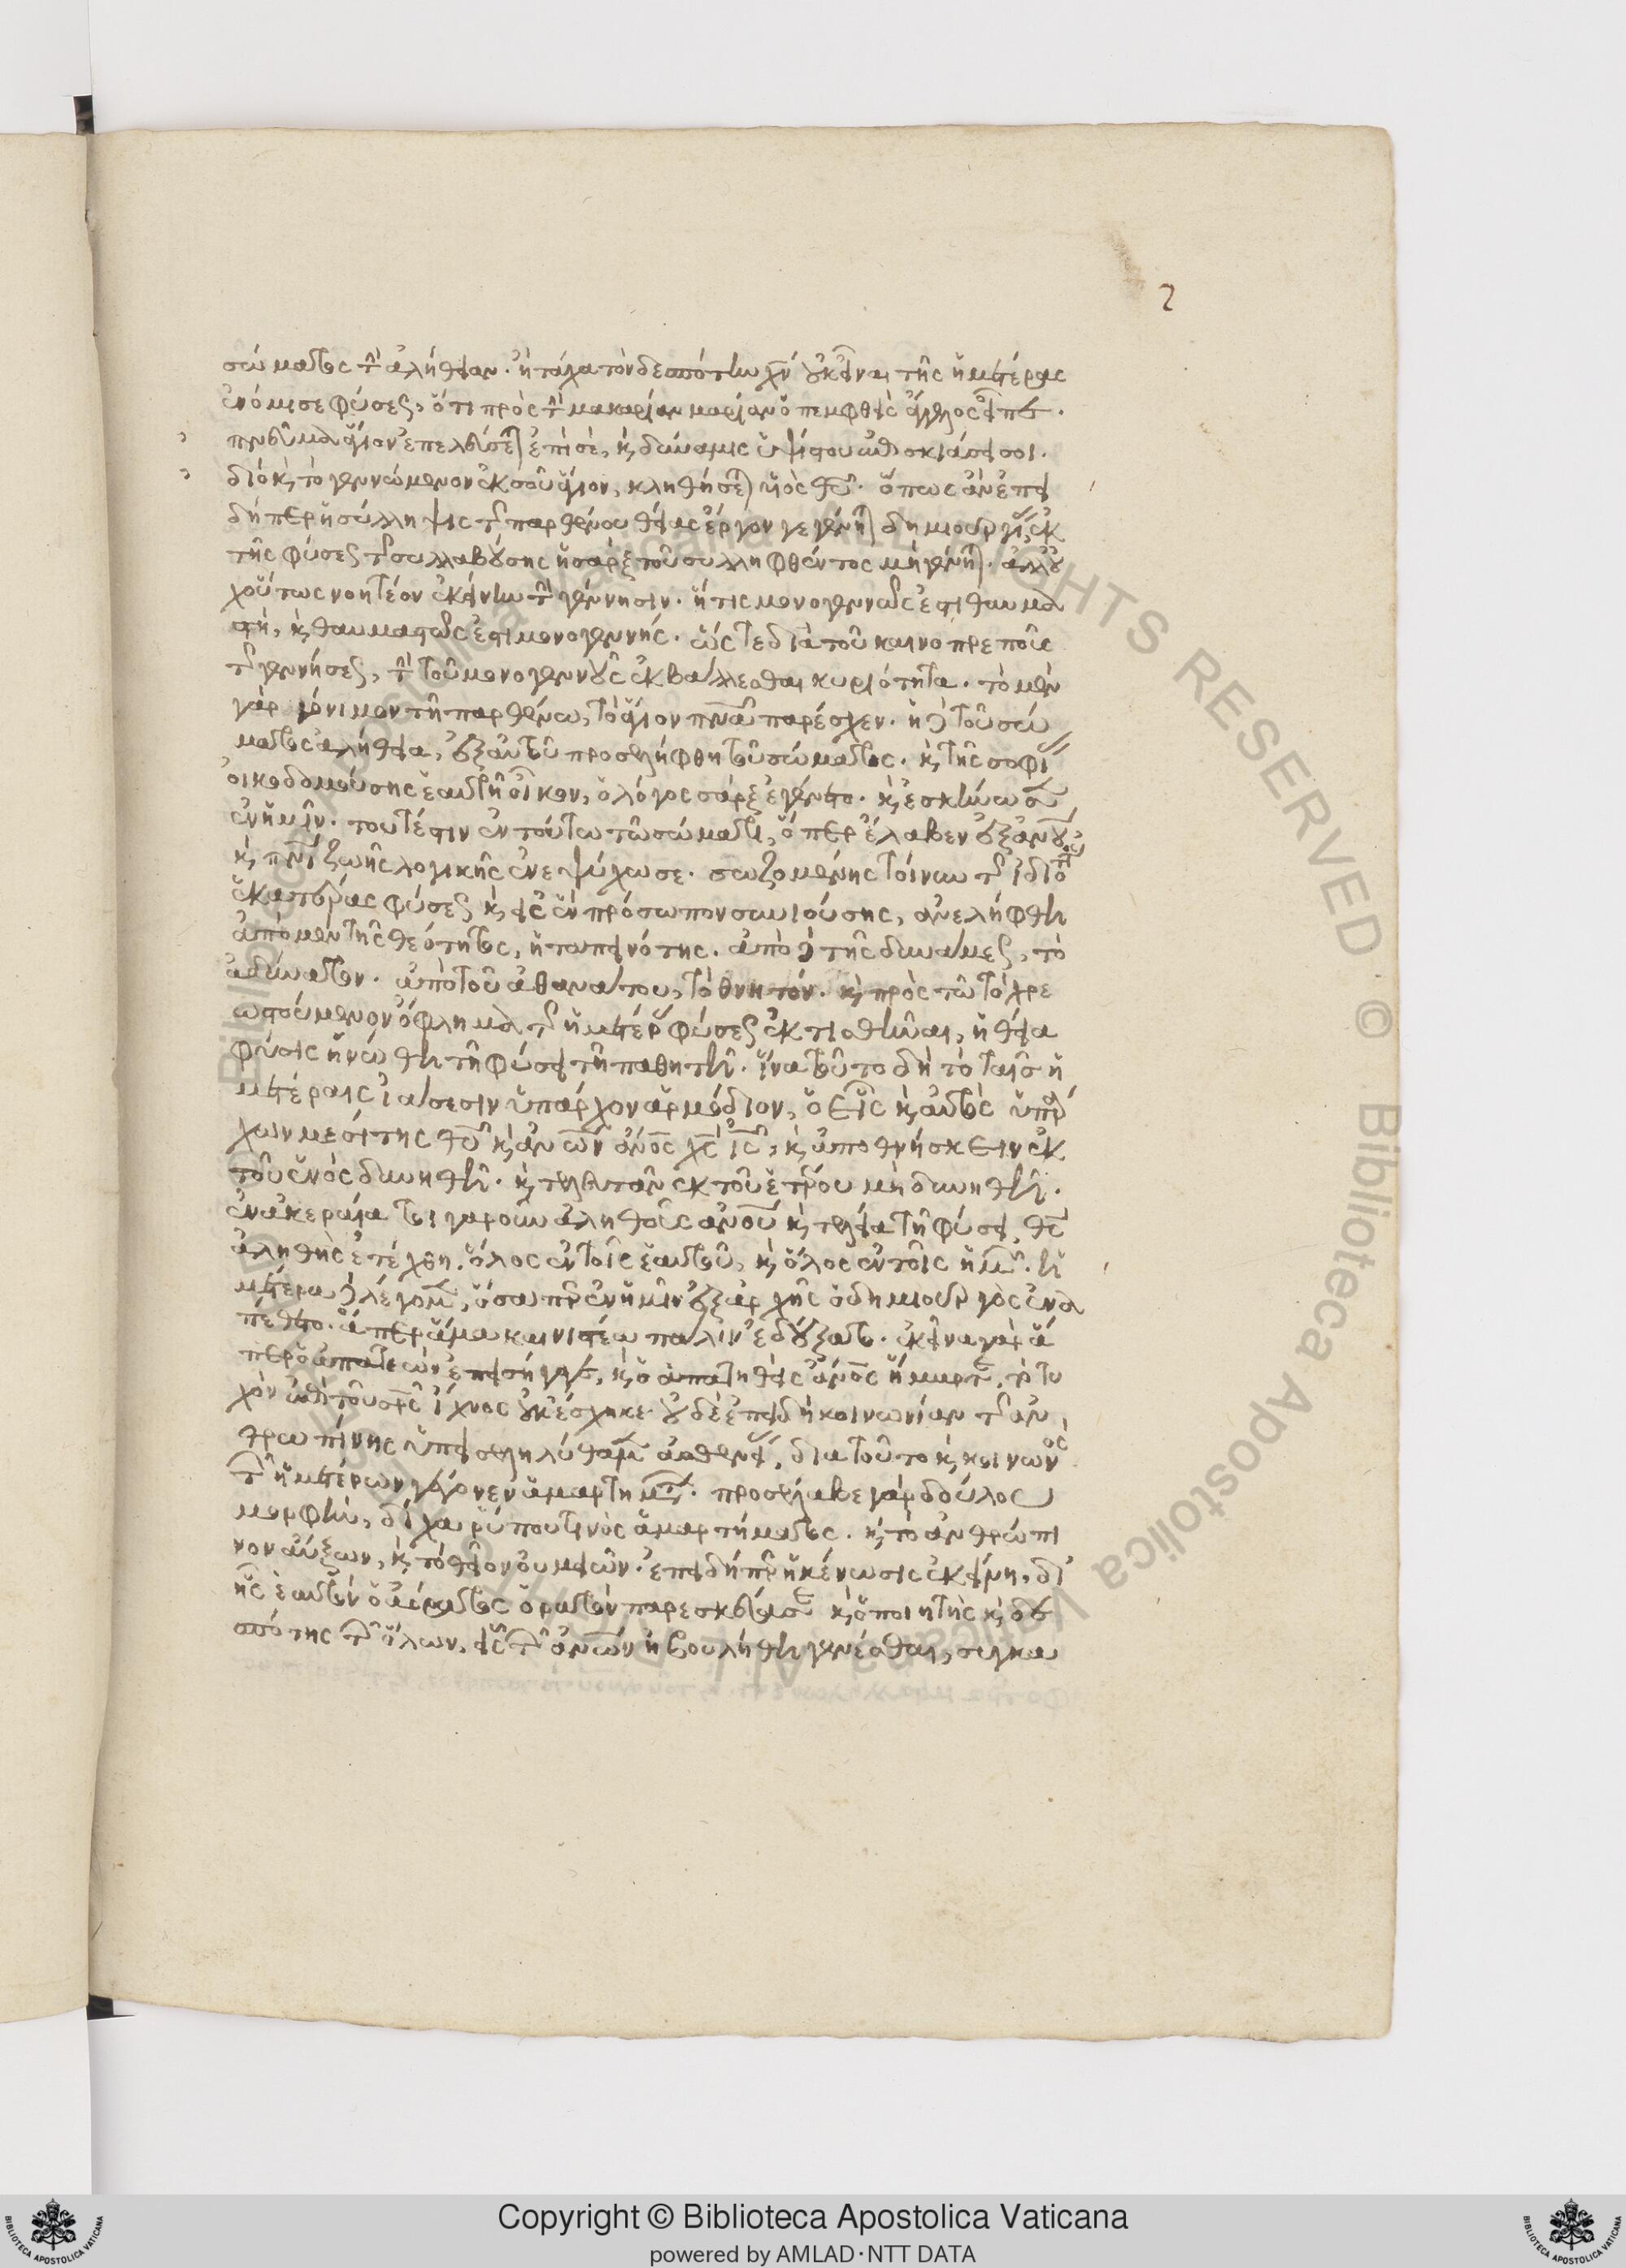 2
σώματος τὴν ἀλήθειαν. ἢ τάχα τὸν δεσπότην χν οὐκ εἶναι τῆς ἡμετέρας
ἐνόμισε φύσεως, ὅτι πρὸς τὴν μακαρίαν μαρίαν ὁ πεμφθεὶς ἄγγελος εἶπε.
πνεῦμα ἅγιον ἐπελεύσεται ἐπὶ σὲ, καὶ δύναμις ὑψίστου ἐπισκιάσει σοι.
διὸ καὶ τὸ γεννώμενον ἐκ σοῦ ἅγιον, κληθήσεται υἱὸς θυ. ὅπως ἂν ἐπει
δήπερ ἡ σύλληψις τῆς παρθένου θείας ἔργον γεγένηται δημιουργίας, ἐκ
τῆς φύσεως τῆς συλλαβούσης ἡ σὰρξ τοῦ συλληφθέντος μὴ γένηται. ἀλλ' οὐ
χ οὕτως νοητέον ἐκείνην τὴν γέννησιν. ἥτις μονογενῶς ἐστι θαυμα
στὴ, καὶ θαυμαστῶς ἐστι μονογεννής. ὥστε διὰ τοῦ καινοπρεποῦς
τῆς γεννήσεως, τὴν τοῦ μονογενοῦς ἐκβάλλεσθαι κυριότητα. τὸ μὲν
γὰρ γόνιμον τῇ παρθένω, τὸ ἅγιον πνα παρέσχεν. ἡ δὲ τοῦ σώ
ματος ἀλήθεια, ἐξ αὐτοῦ προσελήφθη τοῦ σώματος. καὶ τῆς σοφίας
οἰκοδομούσης ἑαυτῇ οἶκον, ὁ λόγος σὰρξ ἐγένετο. καὶ ἐσκήνωσεν
ἐν ἡμῖν. τουτέστιν ἐν τούτω τῶ σώματι, ὅπερ ἔλαβεν ἐξ ἀνου,
καὶ πνι ζωῆς λογικῆς ἐνεψύχωσε. σωζομένης τοίνυν τῆς ἰδιότητος
ἑκατέρας φύσεως καὶ εἰς ἓν πρόσωπον συνιούσης, ἀνελήφθη
ἀπὸ μὲν τῆς θεότητος, ἡ ταπεινότης. ἀπὸ δὲ τῆς δυνάμεως, τὸ
ἀδύνατον. ἀπὸ τοῦ ἀθανάτου, τὸ θνητόν. καὶ πρὸς τῶ τὸ χρε
ωστούμενον ὄφλημα τῆς ἡμετέρας φύσεως ἐκτισθῆναι, ἡ θεία
φύσις ἡνώθη τῇ φύσει τῇ παθητῇ. ἵνα τοῦτο δὴ τὸ ταῖς ἡ
μετέραις ἰάσεσιν ὑπάρχον ἁρμόδιον, ὁ εἷς καὶ αὐτὸς ὑπάρ
χων μεσίτης θυ καὶ ανων ανος χς ις, καὶ ἀποθνήσκειν ἐκ
τοῦ ἑνὸς δυνηθῇ. καὶ τελευτᾶν ἐκ τοῦ ἑτέρου μὴ δυνηθῇ.
ἐν ἀκεραία τοιγαροῦν ἀληθοῦς ανου καὶ τελεία τῇ φύσει, θς
ἀληθὴς ἐτέχθη. ὅλος ἐν τοῖς ἑαυτοῦ, καὶ ὅλος ἐν τοῖς ἡμῶν. ἡ
μέτερα δὲ λέγομεν, ὅσαπερ ἐν ἡμῖν ἐξαρχῆς ὁ δημιουργὸς ἐνα
πέθετο. ἅπερ ἅμα καινιστέα πάλιν ἐδέξατο. ἐκεῖνα γὰρ ἅ
περ ὁ ἀπατεὼν ἐπεισήγαγε, καὶ ὁ ἀπατηθεὶς ανος ἥμαρτε, τὸ τυ
χὸν ἐπὶ τοῦ σρς ἴχνος οὐκ ἔσχηκε. οὐδὲ ἐπειδὴ κοινωνίαν τῆς ἀν
θρωπίνης ὑπεισεληλύθαμεν ἀσθενείας, διὰ τοῦτο καὶ κοινωνὸς
τῶν ἡμετέρων γέγονεν ἁμαρτημάτων. προσέλαβε γὰρ δούλου
μορφὴν, δίχα ῥύπου τινὸς ἁμαρτήματος. καὶ τὸ ἀνθρώπι
νον αὔξων, καὶ τὸ θεῖον οὐ μειῶν. ἐπειδήπερ ἡ κένωσις ἐκείνη, δι'
ἧς ἑαυτὸν ὁ ἀόρατος ὁρατὸν παρεσκεύασε καὶ ὁ ποιητὴς καὶ δε
σπότης τῶν ὅλων, εἷς τῶν ανων ἠβουλήθη γενέσθαι, συγκα